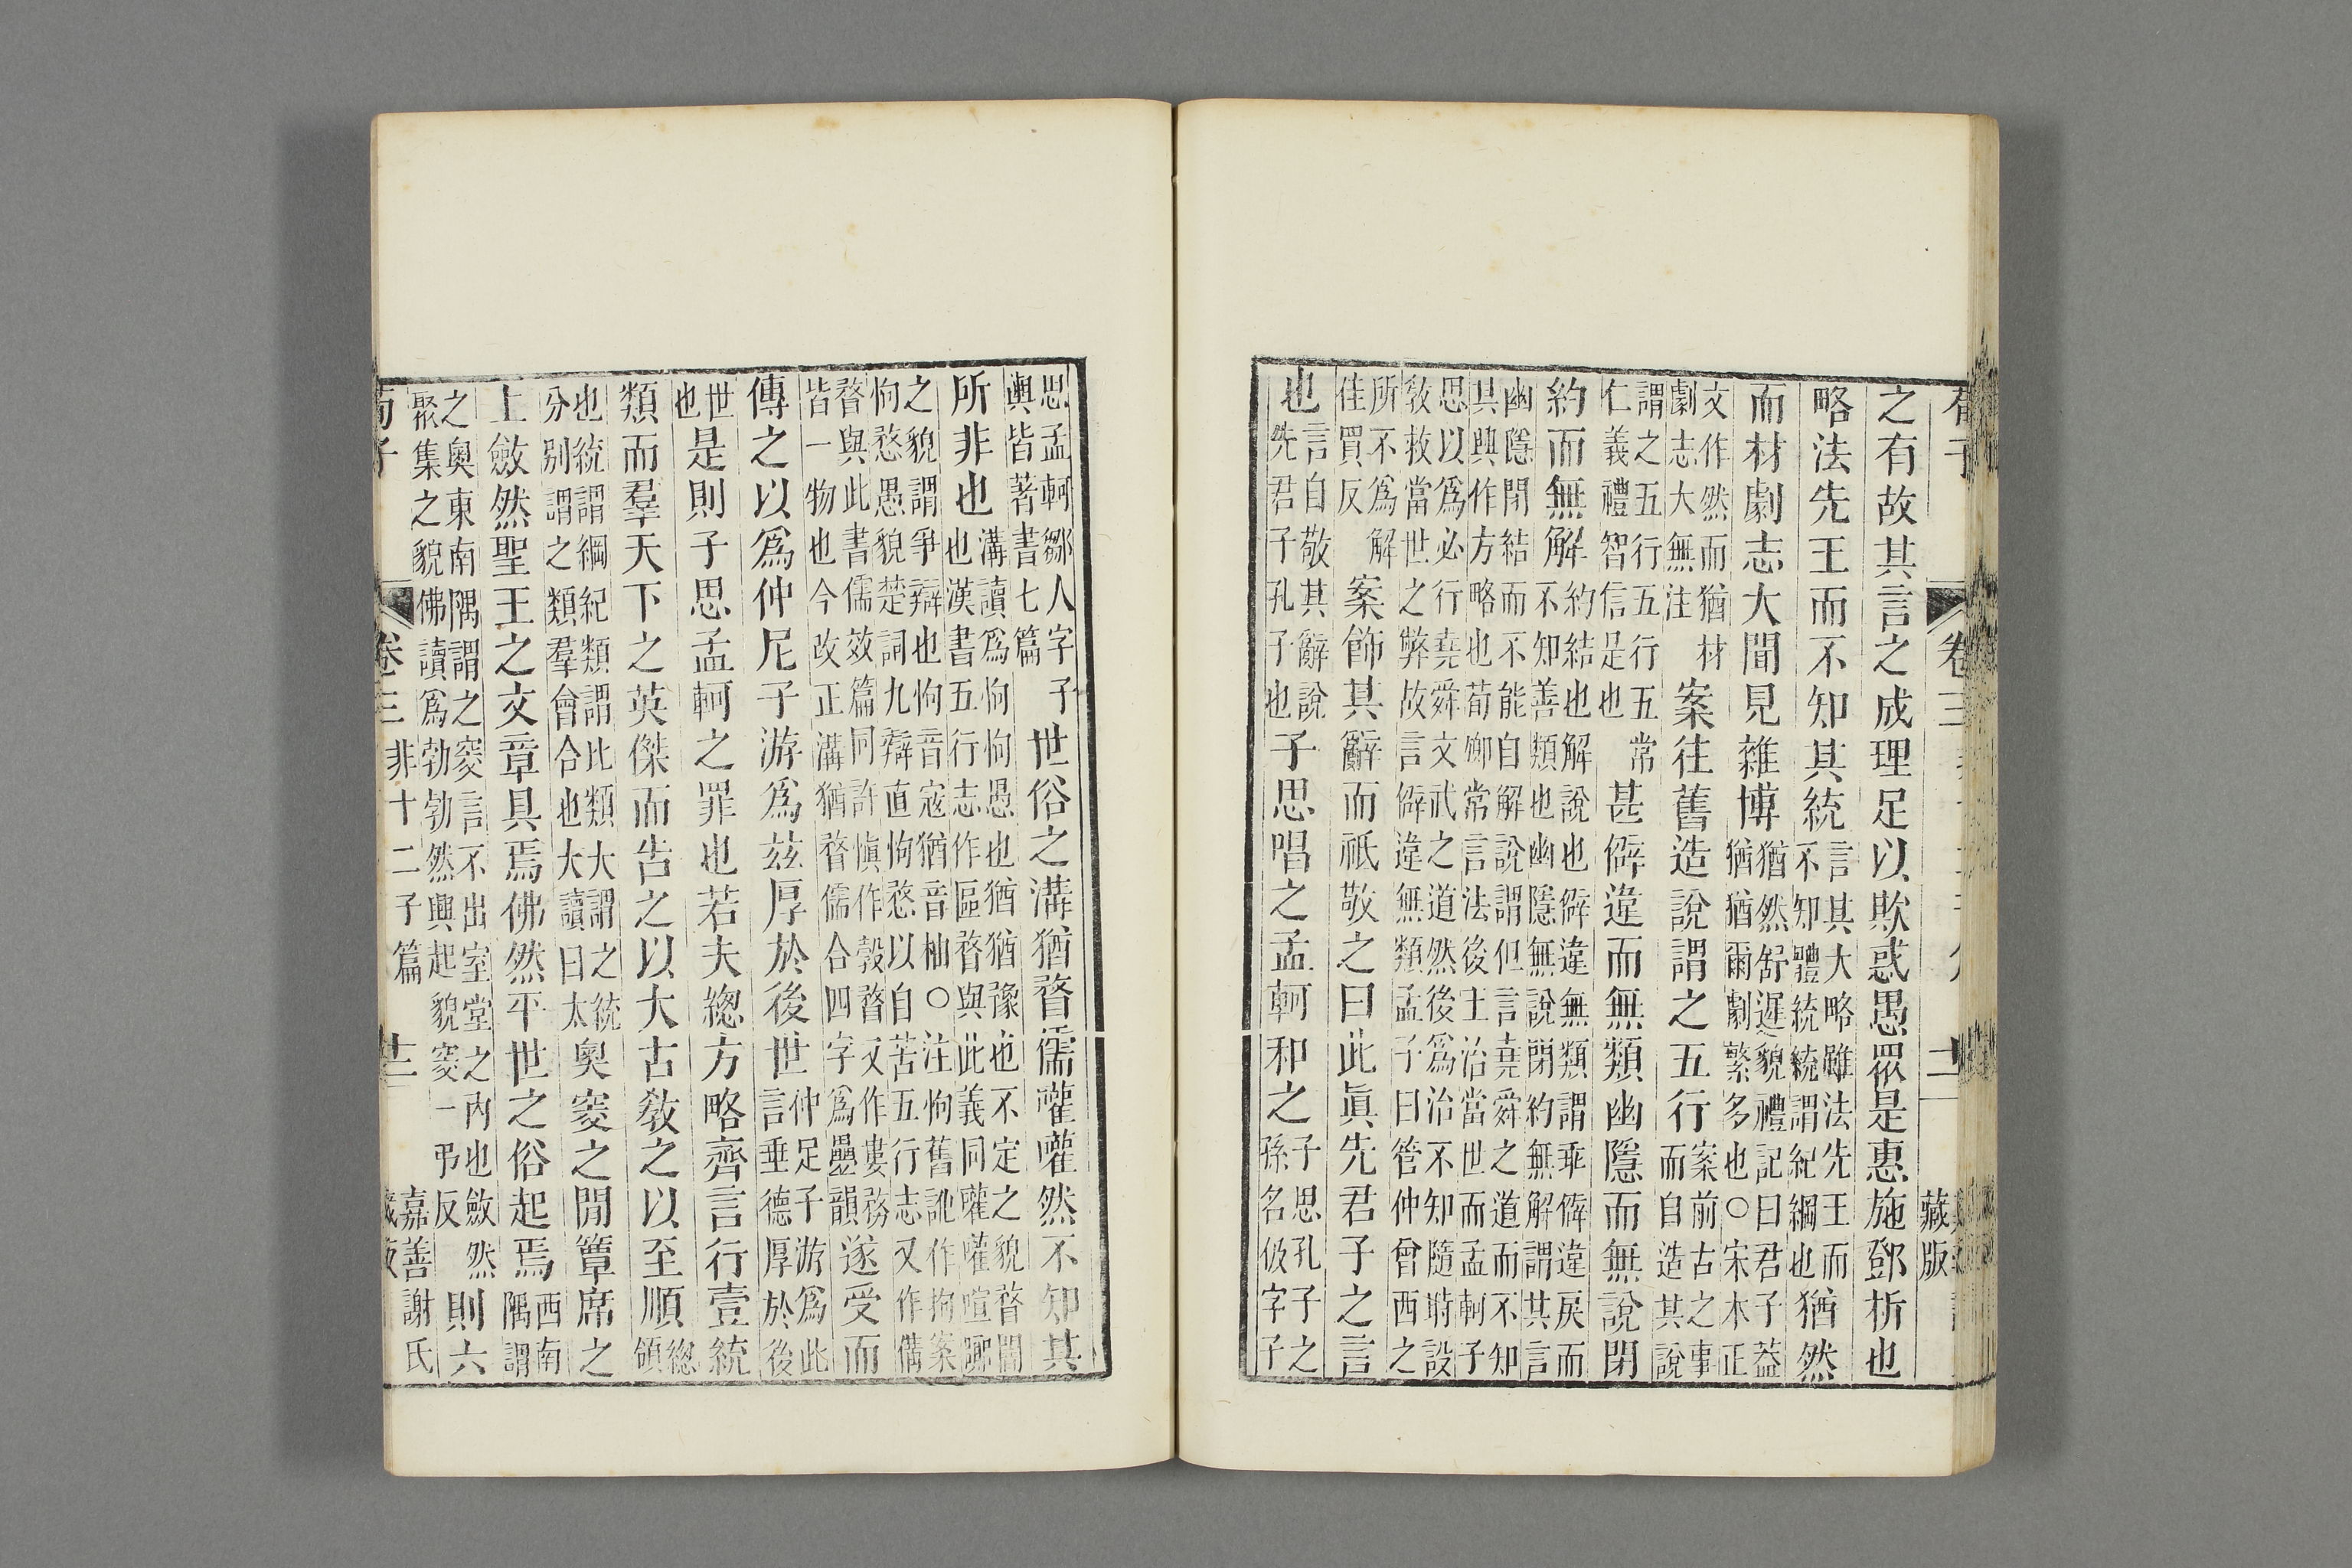 荀子 卷三 藏版
之有故其言之成理足以欺惑愚眾是惠施鄧析也
略法先王而不知其統言其大略雖法先王而不知體統統謂紀綱也猶然
而材劇志大聞見雜博猶然舒遲貌禮記曰君子蓋猶猶爾劇繁多也○宋本正
文作然而猶材劇志大無注案往舊造說謂之五行案前古之事而自造其說
謂之五行五行五常仁義禮智信是也甚僻違而無類幽隱而無說閉
約而無解約結也解說也僻違無類謂乖僻違戾而不知善類也幽隱無說閉約無解謂其言
幽隱閉結而不能自解說謂但言堯舜之道而不知其興作方略也荀卿常言法後王治當世而孟軻子
思以爲必行堯舜文武之道然後爲治不知隨時設敎救當世之弊故言僻違無類孟子曰管仲曾西之
所不爲解佳買反案飾其辭而祇敬之曰此眞先君子之言
也言自敬其辭說先君子孔子也子思唱之孟軻和之子思孔子之孫名伋字子
思孟軻鄒人字子輿皆著書七篇世俗之溝猶瞀儒嚾嚾然不知其
所非也溝讀爲怐怐愚也猶猶豫也不定之貌瞀闇也漢書五行志作區瞀與此義同嚾嚾喧囂
之貌謂爭辯也怐音寇猶音柚○注怐舊訛作拘案怐愗愚貌楚詞九辯直怐愗以自苦五行志又作傋
瞀與此書儒效篇同許愼作瞉瞀又作婁務皆一物也今改正溝猶瞀儒合四字爲疊韻遂受而
傳之以爲仲尼子游爲茲厚於後世仲尼子游爲此言垂德厚於後
世也是則子思孟軻之罪也若夫總方略齊言行壹統
類而羣天下之英傑而告之以大古敎之以至順總領
也統謂綱紀類謂比類大謂之統分別謂之類羣會合也大讀曰太奧窔之閒簟席之
上斂然聖王之文章具焉佛然平世之俗起焉西南隅謂
之奧東南隅謂之窔言不出室堂之內也斂然聚集之貌佛讀爲勃勃然興起貌窔一弔反則六
荀子 卷三 非十二子篇 十二 嘉善謝氏藏版